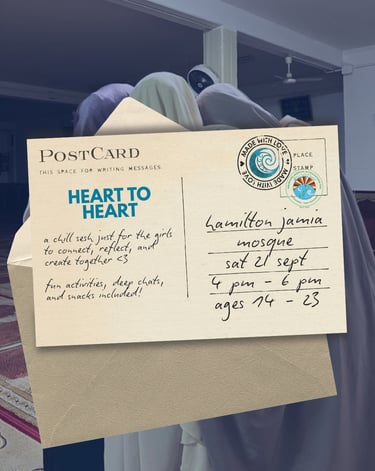 POSTCARD
THIS SPACE FOR WRITING MESSAGES
HEART TO
HEART
a chill sesh just for the girls
to connect, reflect, and
create together <3
fun activities, deep chats,
and snacks included!
MADE WITH LOVE
MADE WITH LOVE
PLACE
STAMP
hamilton jamia
mosque
sat 21 sept
4 pm - 6 pm
ages 14 - 23